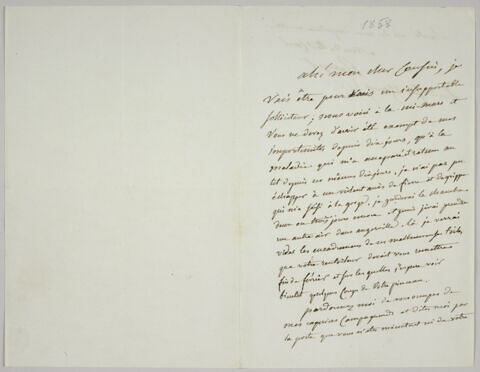 1858
ah! mon cher Cousin, je
Vais être pour vous un insupportable
solliciteur; nous voici à la mi-mars et
Vous ne devez d'avoir été exempt de mes
importunités depuis dix jours, qu'à la
maladie qui m'a accaparé et retenu au
lit depuis ces mêmes dix jours. je n'ai pas pu
échapper à un violent accès de fièvre et de grippe
qui m'a saisi à la gorge. je garderai la chambre
deux ou trois jours encore et puis j'irai prendre
un autre air dans angerville. là je verrai
vides les encadremens de ces malheureuses toiles
que votre rentoileur devait vous remettre
fin de février et sur lesquelles j'espère voir
bientôt quelques Coups de Votre pinceau.
pardonnez moi de m'occuper de
mes caprices Campagnards et dites moi par
la poste que vous n'êtes mécontent ni de votre